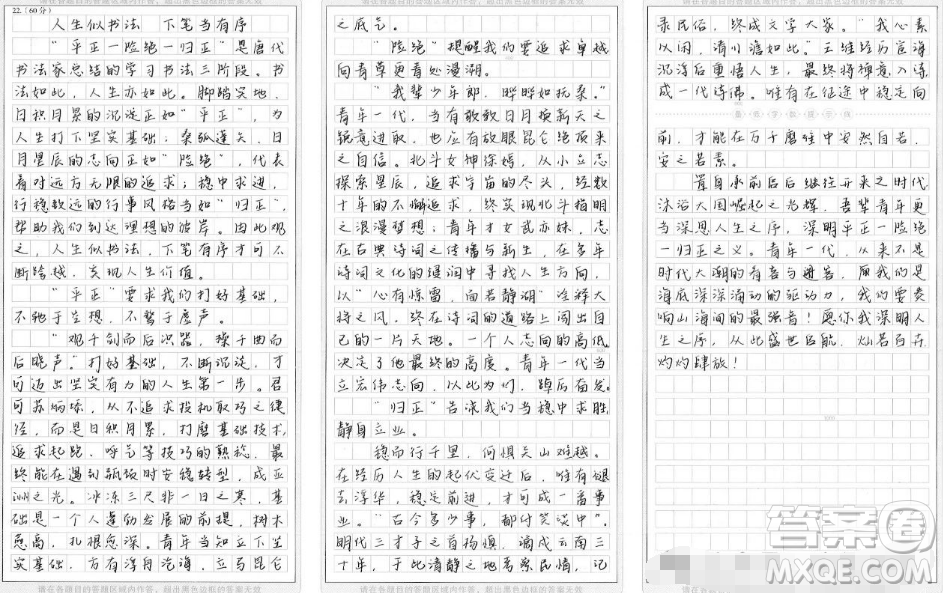 22.(60分)
人生似书法 下笔当有序
“平正一险绝一归正”是唐代
书法家总结的学习书法三阶段。书
法如此,人生亦如此。脚踏实地、
日积月累的沉淀正如“平正”,为
人生打下坚实基础;桑弧蓬矢、日
月星辰的志向正如“险绝”,代表
着对远方无限的追求;稳中求进,
行稳致远的行事风格当如“归正”,
帮助我们到达理想的彼岸。因此观
之,人生似书法,下笔有序才可不
断跨越,实现人生价值。
“平正”要求我们打好基础,
不驰于空想,不骛于虚声。
“观千剑而后识器,操千曲而
后晓声”打好基础,不断沉淀,才
可迈出坚实有力的人生第一步。君
可苏炳添,从不追求投机取巧之捷
径,而是日积月累,打磨基础技术,
追求起跑、呼气等技巧的熟稔,最
终能在遇到瓶颈时安稳转型,成亚
洲之光。冰冻三尺非一日之寒,基
础是一个人蓬勃发展的前提,树木
愈高,扎根愈深。青年当知立下坚
实基础,方有浮舟沧海,立马昆仑
之底气。
“险绝”提醒我们要追求卓越
向青草更青处漫溯。
“我辈少年郎,晔晔如扶桑。”
青年一代,当有敢教日月换新天之
锐意进取,也应有放眼昆仑绝顶来
之自信。北斗女神徐婧,从小立志
探索星辰,追求宇宙的尽头,经数
十年的不懈追求,终实现北斗指明
之浪漫梦想;青年才女武亦姝,志
在古典诗词之传播与新生,在多年
诗词文化的浸润中寻找人生方向,
以“心有惊雷,面若静湖”诠释大
将之风,终在诗词的道路上闯出自
己的一片天地。一个人志向的高低
决定了他最终的高度。青年一代当
立宏伟志向,以此为们,踔厉奋发。
“归正”告诫我们当稳中求胜
静身立业。
稳而行千里,何惧关山难越。
在经历人生的起伏变迁后,唯有褪
去浮华,稳定前进,才可成一番事
业。“古今多少事,都付笑谈中”,
明代三才子之首杨慎,谪戍云南三
十年,于此清静之地考察民情,记
录民俗,终成文学大家。“我心素
以闲,清川澹如此。”王维经历宦海
沉浮后重悟人生,最终将禅意入诗,
成一代诗佛。唯有在征途中稳定向
前,才能在万千磨难中安然自若,
安之若素。
置身承前启后继往开来之时代
沐浴大国崛起之光辉,吾辈青年更
当深思人生之序,深明平正一险绝
一归正之义。青年一代,从来不是
时代大潮的看客与过客,而我们是
海底深深涌动的驱动力,我们要奏
响山海间的最强音!愿你我深明人
生之序,从此盛世启航,灿若百卉
灼灼肆放!
答案圈
MXQE.COM